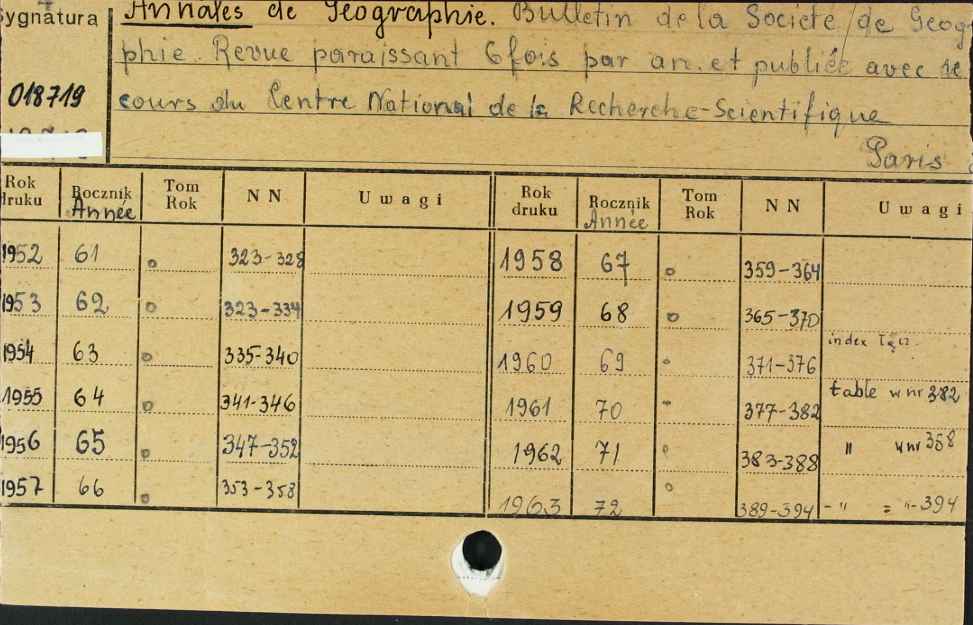 Sygnatura
Annales de Geographie. Bulletin de la Societe de Geogra
phie. Revue paraissant 6 fois par an. et publiée avec le
018719
cours du Centre National de la Recherche-Scientifique
Paris
Rok druku Rocznik Année Tom Rok NN Uwagi Rok druku Rocznik Année Tom Rok NN Uwagi
1952 61 o 323-328 1958 67 o 359-364
1953 62 o 323-334 1959 68 o 365-370
1954 63 o 335-340 1960 69 o 371-376 index
1955 64 o 341-346 1961 70 377-382 table w nr 382
1956 65 o 347-352 1962 71 o 383-388 " w nr 358
1957 66 o 353-358 1963 72 o 389-394 - " = "-394